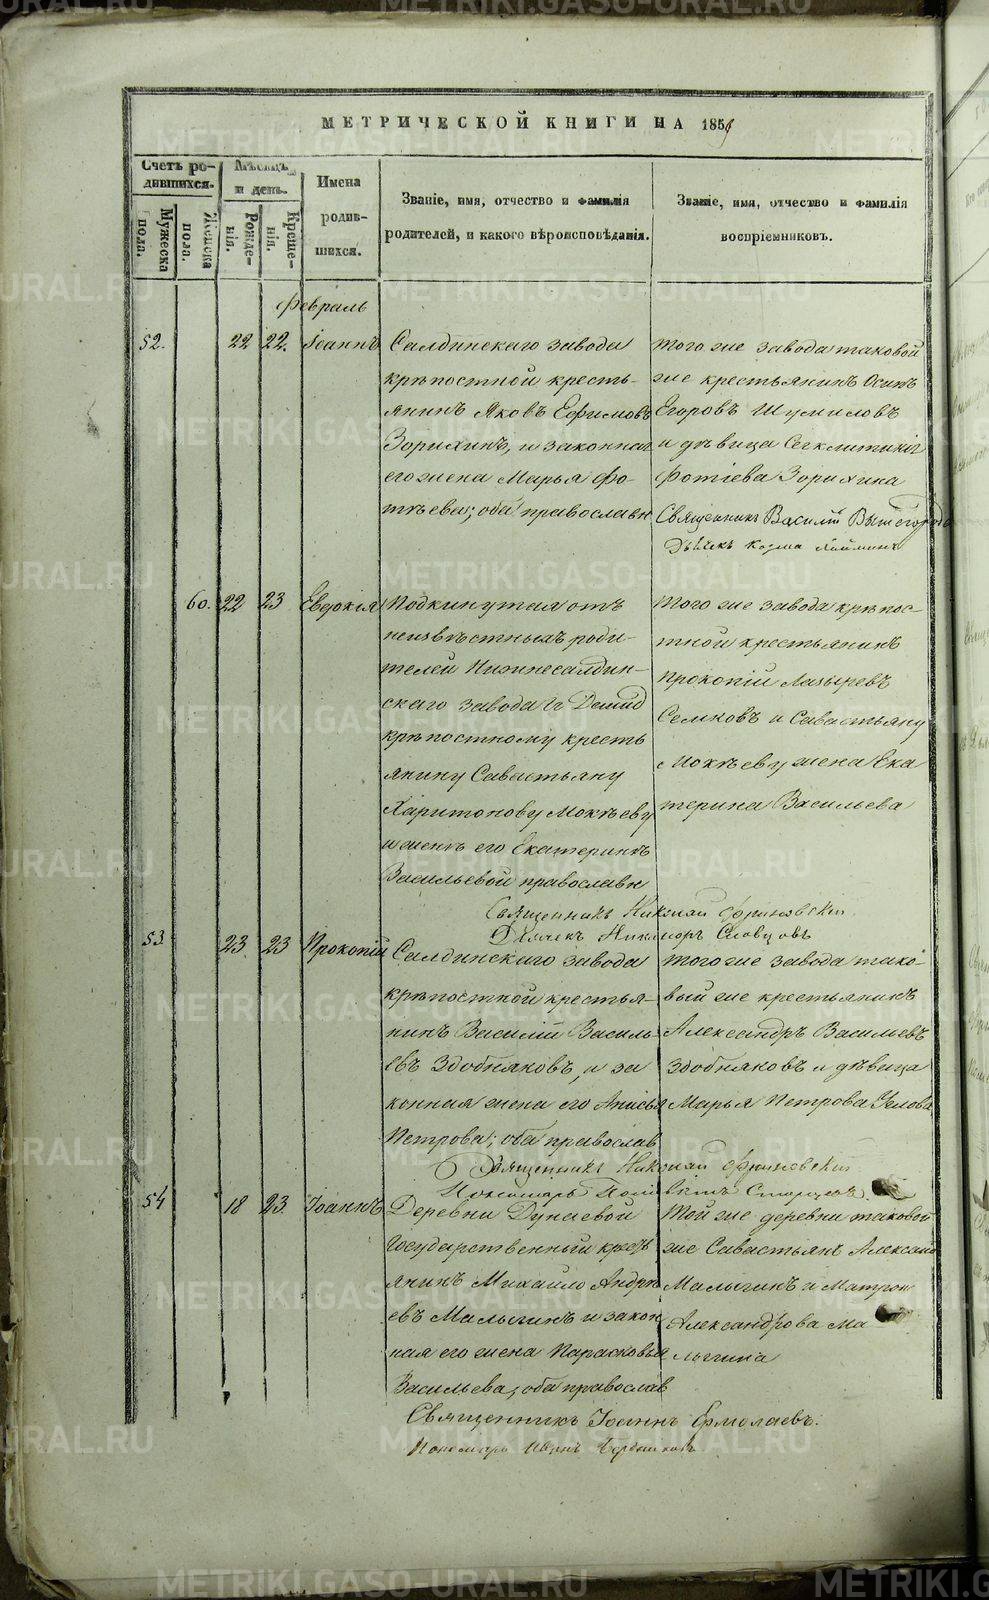 МЕТРИЧЕСКОЙ КНИГИ НА 185
Счетъ ро-
дившихся.
Мужеска
пола.
Женска
пола.
Мѣсяцъ
и день.
Рожде-
нія.
Креще-
нія.
Имена
родив-
шихся.
Званіе, имя, отчество и фамилія
родителей, и какого вѣроисповѣданія.
Званіе, имя, отчество и фамилія
воспріемниковъ.
Февраль
52.
22
22.
Іоаннъ
Салдинскаго завода
крѣпостной кресть-
янинъ Яковъ Ефимовъ
Зорихинъ, и законная
его жена Марья Фо-
тѣева; оба православн
того же завода таковой
же крестьянинъ Осипъ
Егоровъ Шумиловъ
и дѣвица Секлитикія
Фотіева Зорихина
Священникъ Василій
Дьячекъ Козма
60.
22
23
Евдокія
Подкинутая отъ
неизвѣстныхъ роди-
телей Нижнесалдин-
скаго завода Гг Демид
крѣпостному кресть
янину Савастьяну
Харитонову Мокѣеву
и женѣ его Екатеринѣ
Васильевой православн
того же завода крѣпос-
тной крестьянинъ
Прокопій Лазыревъ
Семковъ и Савастьяну
Мокѣеву жена Ека
терина Васильева
Священникъ Николай Фриновскій
Дьячекъ Никаноръ Словцовъ
53.
23.
23
Прокопій
Салдинскаго завода
крѣпостной крестья-
нинъ Василій Василь
евъ Здобняковъ, и за
конная жена его Анисья
Петрова; оба православ
того же завода тако-
вый же крестьянинъ
Александръ Васильевъ
Здобняковъ и дѣвица
Марья Петрова
Священникъ Николай Фриновскій
Пономарь
54
18
23.
Іоаннъ
Деревни Дунаевой
Государственный кресть
янинъ Михайло Андрѣ
евъ Малыгинъ и закон
ная его жена Парасковья
Васильева, оба православ
той же деревни таковой
же Савастьянъ Алексан
Малыгинъ и Матрон
Александрова Ма
лыгина
Священникъ Іоаннъ Ермолаевъ.
Пономарь Иванъ
METRIKI.GASO-URAL.RU